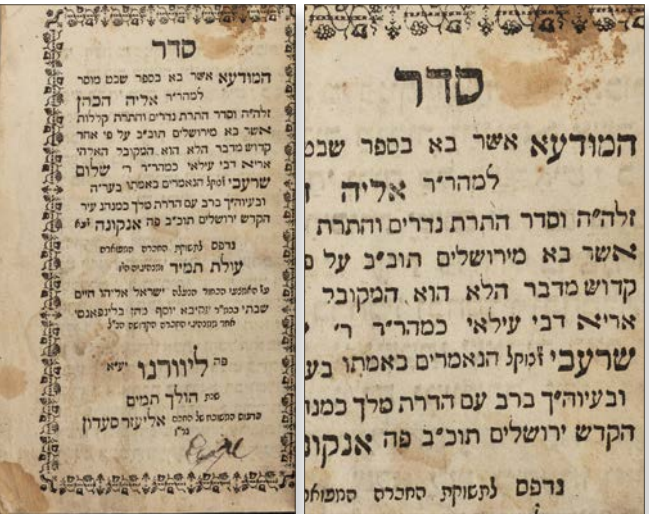 סדר
המודעא אשר בא בספר שבט מוסר
למהר״ר אליה הכהן
זלה״ה וסדר התרת נדרים והתרת קללות
אשר בא מירושלים תוב״ב על פי אחד
קדוש מדבר הלא הוא המקובל האלהי
אריא דבי עילאי כמהר״ר ר׳ שלום
שרעבי זמקל הנאמרים באמתו בער״ה
ובעיוה״ך ברב עם הדרת מלך כמנהג עיר
הקדש ירושלים תוב״ב פה אנקונה
נדפס לתשוקת החברה המפוארה
עולת תמיד
ישראל אליהו חיים
שבתי יוסף כהן
אחד החברה הקדושה הנ״ל
פה ליוורנו יע״א
שנת הולך תמים
אליעזר סעדון
סדר
המודעא אשר בא בספר שבט
למהר״ר אליה
זלה״ה וסדר התרת נדרים והתרת
אשר בא מירושלים תוב״ב על
קדוש מדבר הלא הוא המקובל
אריא דבי עילאי כמהר״ר ר׳
שרעבי זמקל הנאמרים באמתו
ובעיוה״ך ברב עם הדרת מלך
הקדש ירושלים תוב״ב פה
נדפס לתשוקת החברה